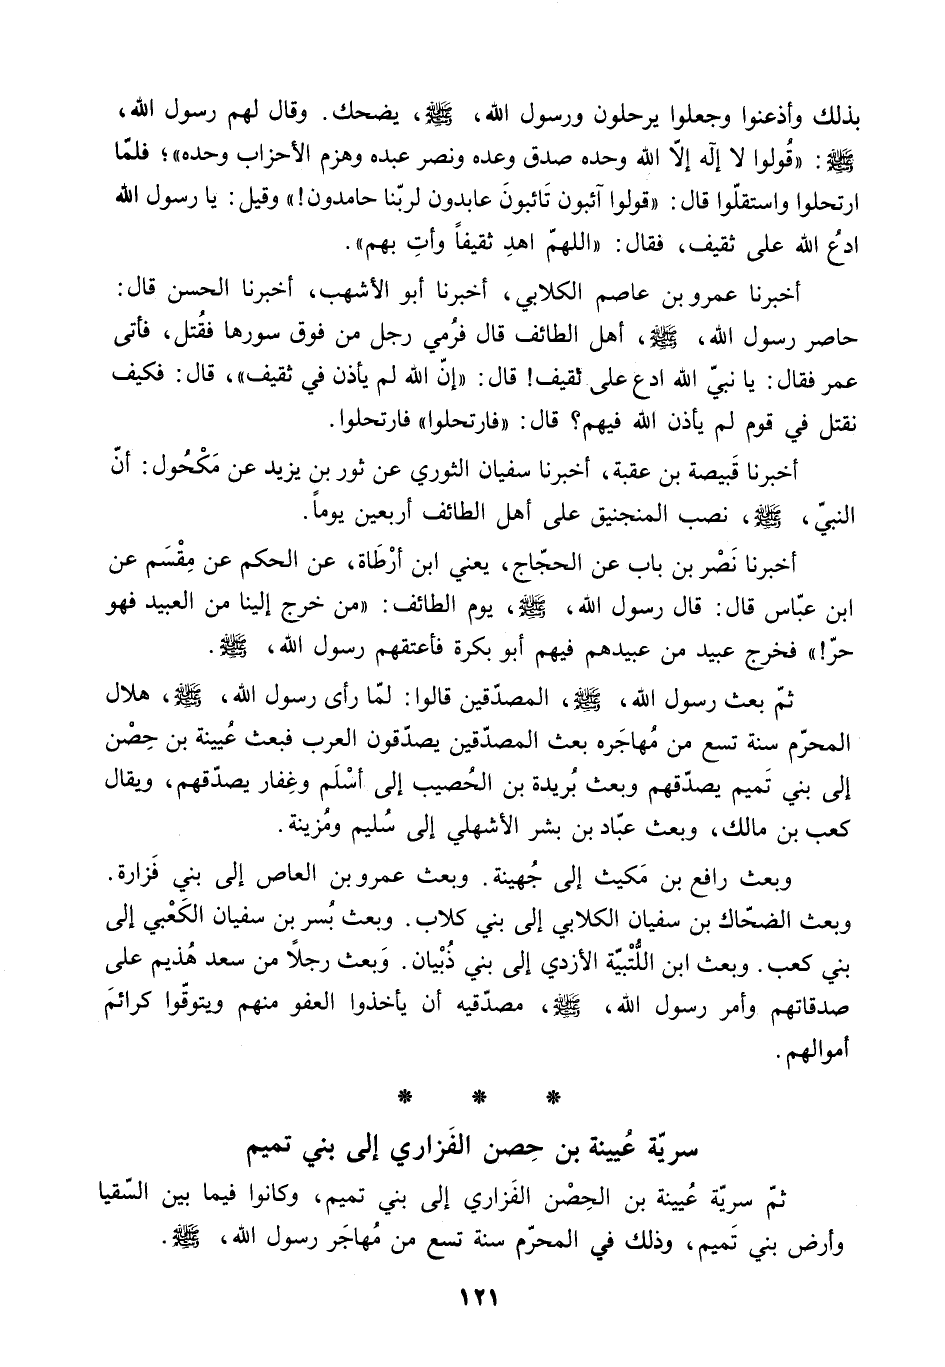 بذلك وأذعنوا وجعلوا يرحلون ورسول الله، ﷺ، يضحك. وقال لهم رسول الله،
ﷺ: «قُولوا لا إلٓه إلاّ الله وحده صدق وعده ونصر عبده وهزم الأحزاب وحده»؛ فلمّا
ارتحلوا واستقلّوا قال: «قولوا آئبون تَائبونَ عابدون لربّنا حامدون!» وقيل: يا رسول الله
ادعُ الله على ثقيف، فقال: «اللهمّ اهدِ ثقيفاً وأتِ بهم».
أخبرنا عمرو بن عاصم الكلابي، أخبرنا أبو الأشهب، أخبرنا الحسن قال:
حاصر رسول الله، ﷺ، أهل الطائف قال فرُمي رجل من فوق سورها فقُتل، فأتى
عمر فقال: يا نبيّ الله ادع على ثقيف! قال: «إنّ الله لم يأذن في ثقيف»، قال: فكيف
نقتل في قوم لم يأذن الله فيهم؟ قال: «فارتحلوا» فارتحلوا.
أخبرنا قَبيصة بن عقبة، أخبرنا سفيان الثوري عن ثور بن يزيد عن مَكْحُول: أنّ
النبيّ، ﷺ، نصب المنجنيق على أهل الطائف أربعين يوماً.
أخبرنا نَصْر بن باب عن الحجّاج، يعني ابن أرْطَاة، عن الحكم عن مِقْسَم عن
ابن عبّاس قال: قال رسول الله، ﷺ، يوم الطائف: «من خرج إلينا من العبيد فهو
حرّ!» فخرج عبيد من عبيدهم فيهم أبو بكرة فأعتقهم رسول الله، ﷺ.
ثمّ بعث رسول الله، ﷺ، المصدّقين قالوا: لمّا رأى رسول الله، ﷺ، هلال
المحرّم سنة تسع من مُهاجَره بعث المصدّقين يصدّقون العرب فبعث عُيينة بن حِصْن
إلى بني تَميم يصدّقهم وبعث بُريدة بن الحُصيب إلى أسْلَم وغِفار يصدّقهم، ويقال
كعب بن مالك، وبعث عبّاد بن بشر الأشهلي إلى سُليم ومُزينة.
وبعث رافع بن مَكيث إلى جُهينة. وبعث عمرو بن العاص إلى بني فَزارة.
وبعث الضحّاك بن سفيان الكلابي إلى بني كلاب. وبعث بُسر بن سفيان الكَعْبي إلى
بني كعب. وبعث ابن اللُّتْبيّة الأزدي إلى بني ذُبْيان. وَبعث رجلاً من سعد هُذيم على
صدقاتهم وأمر رسول الله، ﷺ، مصدّقيه أن يأخذوا العفو منهم ويتوقّوا كرائمَ
أموالهم.
* * *
سريّة عُيينة بن حِصن الفَزاري إلى بني تميم
ثمّ سريّة عُيينة بن الحِصْن الفزاري إلى بني تميم، وكانوا فيما بين السّقيا
وأرض بني تَميم، وذلك في المحرّم سنة تسع من مُهاجَر رسول الله، ﷺ.
١٢١